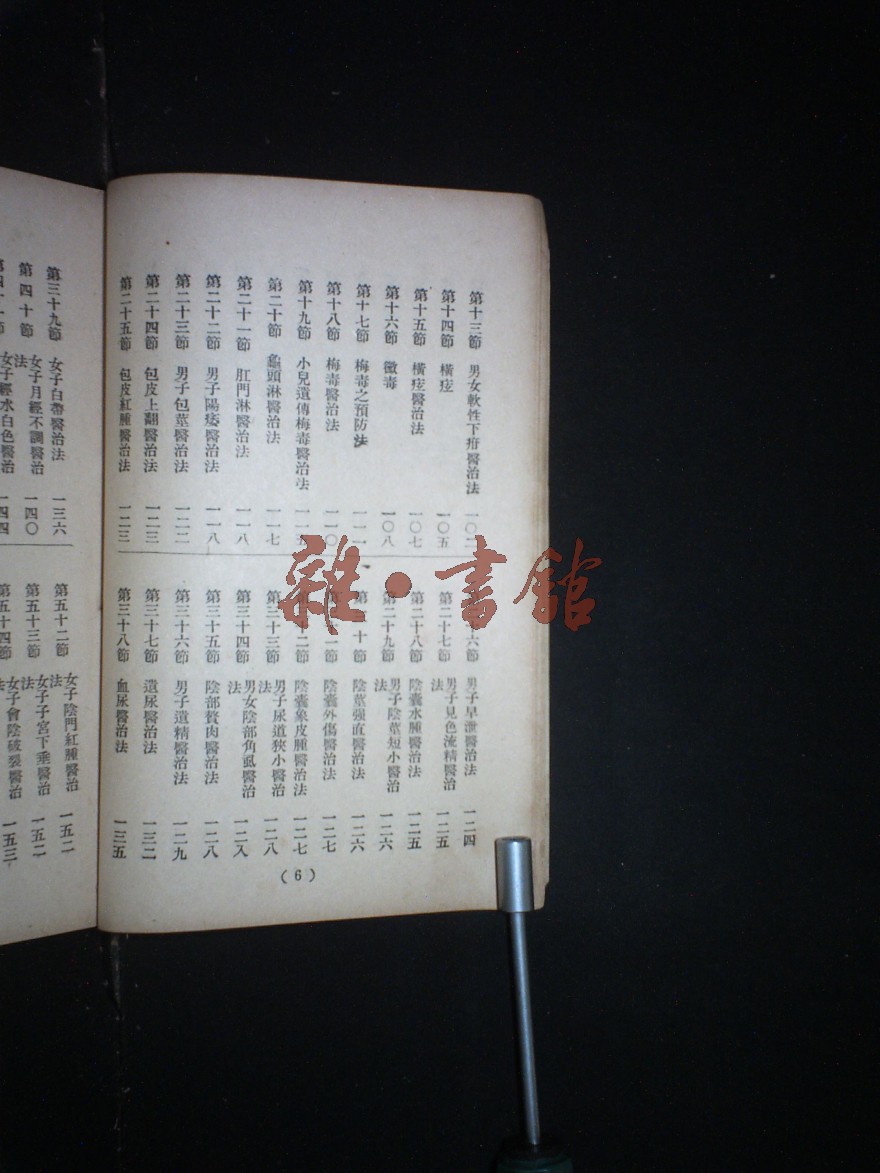 第十三節　男女軟性下疳醫治法　一〇二
第十四節　橫痃　一〇五
第十五節　橫痃醫治法　一〇七
第十六節　黴毒　一〇八
第十七節　梅毒之預防法
第十八節　梅毒醫治法　一一〇
第十九節　小兒遺傳梅毒醫治法
第二十節　龜頭淋醫治法　一一七
第二十一節　肛門淋醫治法　一一八
第二十二節　男子陽痿醫治法　一一八
第二十三節　男子包莖醫治法　一二二
第二十四節　包皮上翻醫治法　一二三
第二十五節　包皮紅腫醫治法　一二三
六節　男子早泄醫治法　一二四
第二十七節　男子見色流精醫治法　一二五
第二十八節　陰囊水腫醫治法　一二五
第二十九節　男子陰莖短小醫治法　一二六
十節　陰莖强直醫治法　一二六
一節　陰囊外傷醫治法　一二七
十二節　陰囊象皮腫醫治法　一二七
第三十三節　男子尿道狹小醫治法　一二八
第三十四節　男女陰部角虱醫治法　一二八
第三十五節　陰部贅肉醫治法　一二八
第三十六節　男子遺精醫治法　一二九
第三十七節　遺尿醫治法　一三二
第三十八節　血尿醫治法　一三五
（6）
第三十九節　女子白帶醫治法　一三六
第四十節　女子月經不調醫治法　一四〇
第四十一節　女子經水白色醫治　一四四
第五十二節　女子陰門紅腫醫治法　一五二
第五十三節　女子子宮下垂醫治法　一五二
第五十四節　女子會陰破裂醫治法　一五三
雜·書館